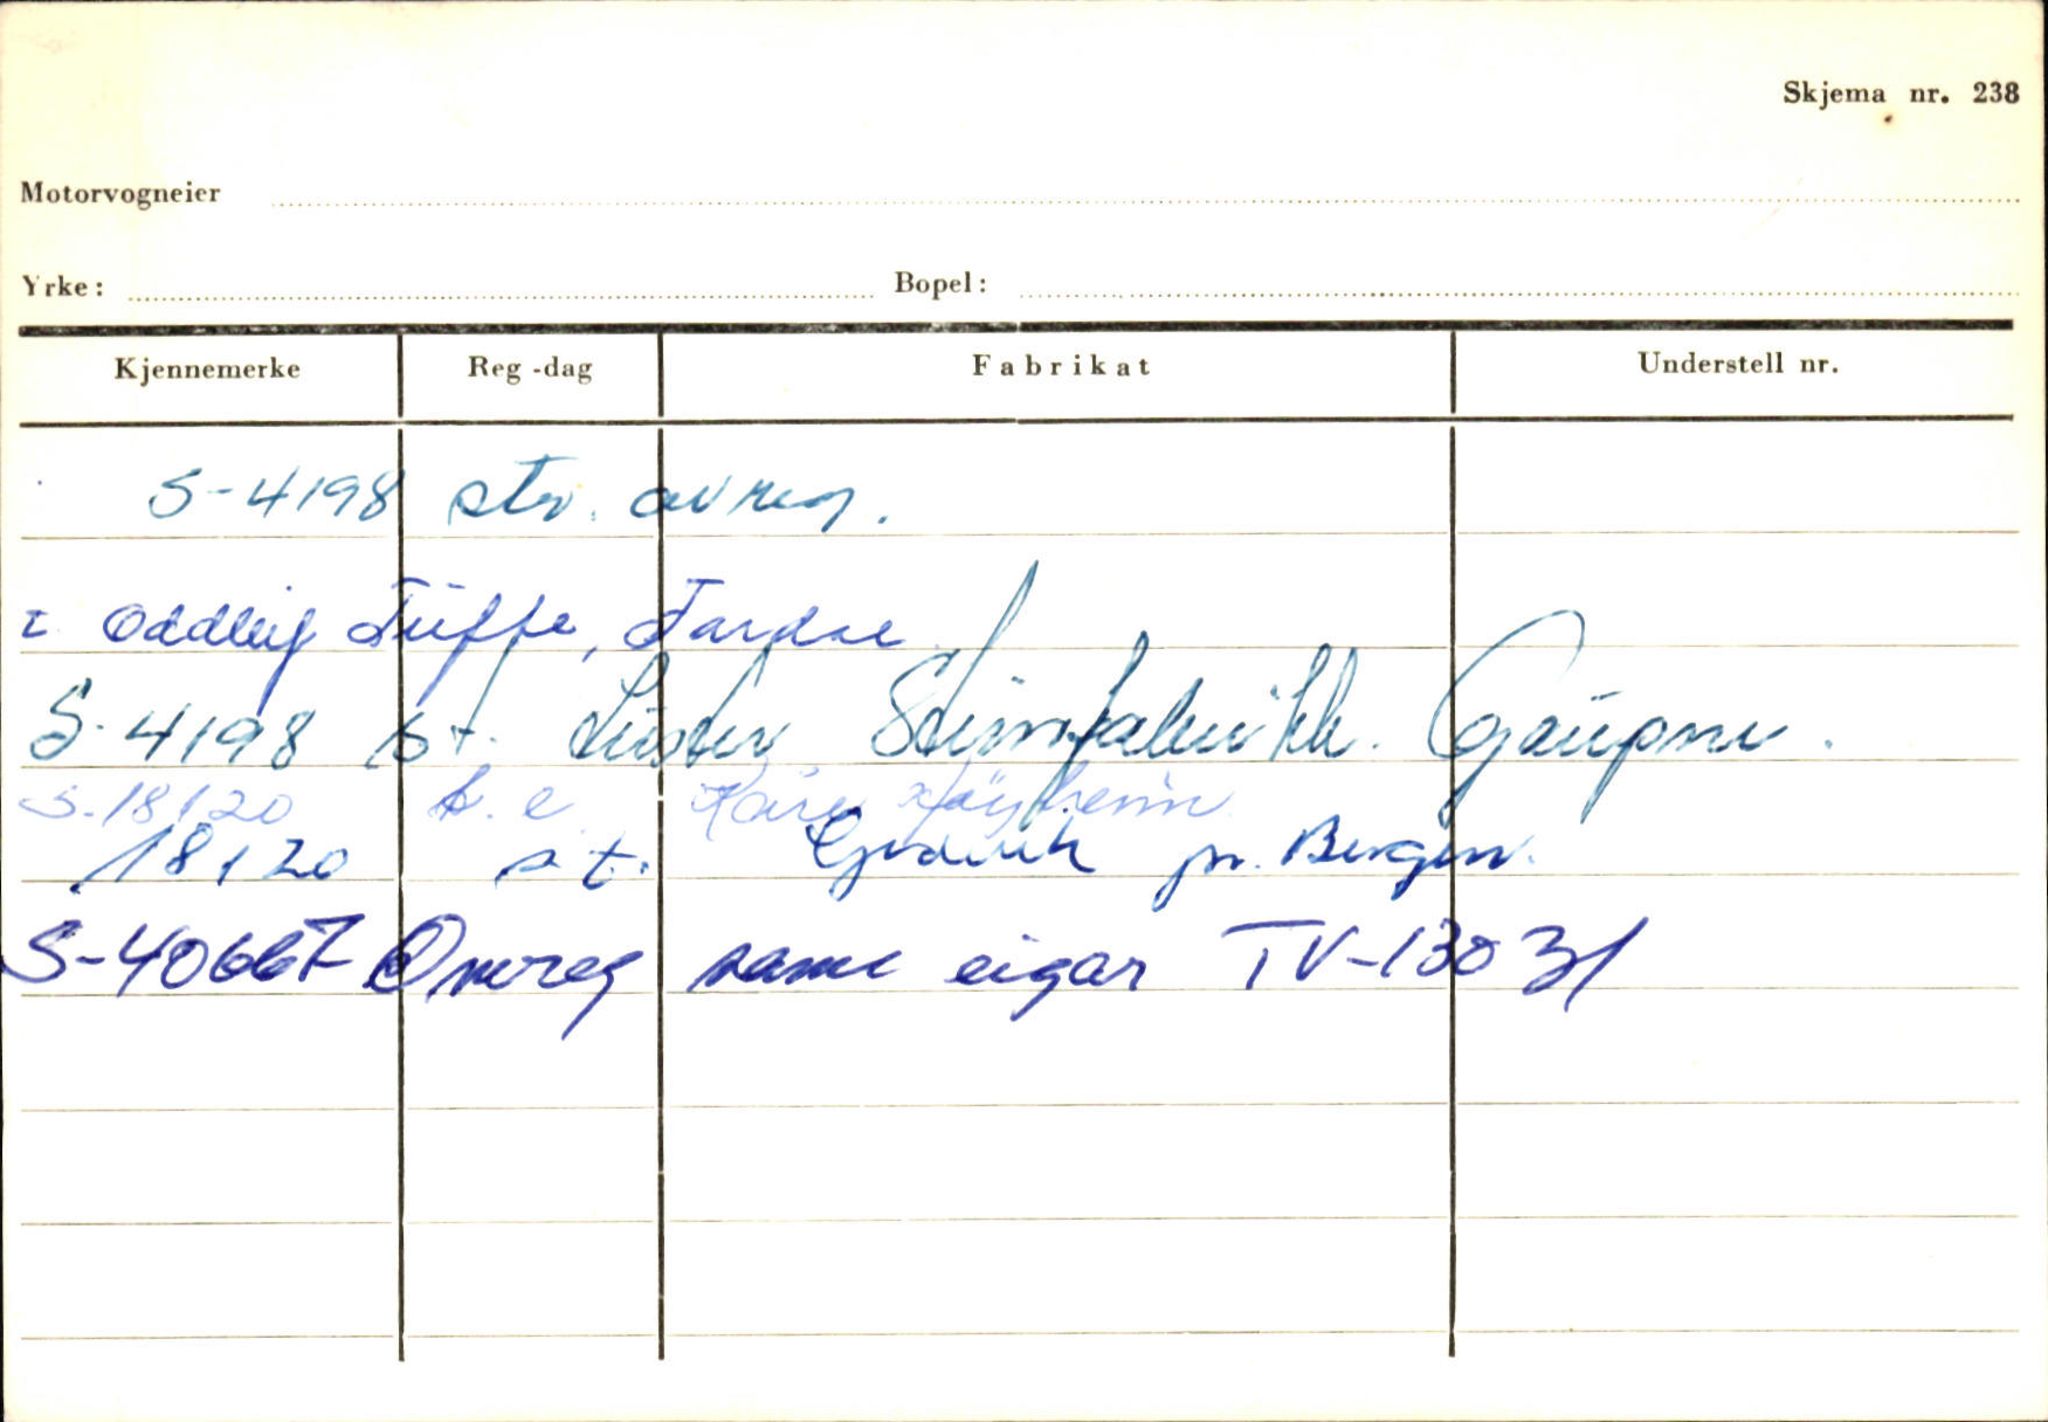 Skjema nr. 238
Motorvogneier
Yrke: Bopel:
Kjennemerke Reg-dag Fabrikat Understell nr.
S-4198 str. avreg.
Oddleif Tuffe, Jardal
S-4198 st. Luster Steinfabrikk. Gaupne.
S.18120 t.e. Kåre Høyheim
18120 s t. Gjervik pr. Bergen.
S-40667 Omreg same eigar TV-13031